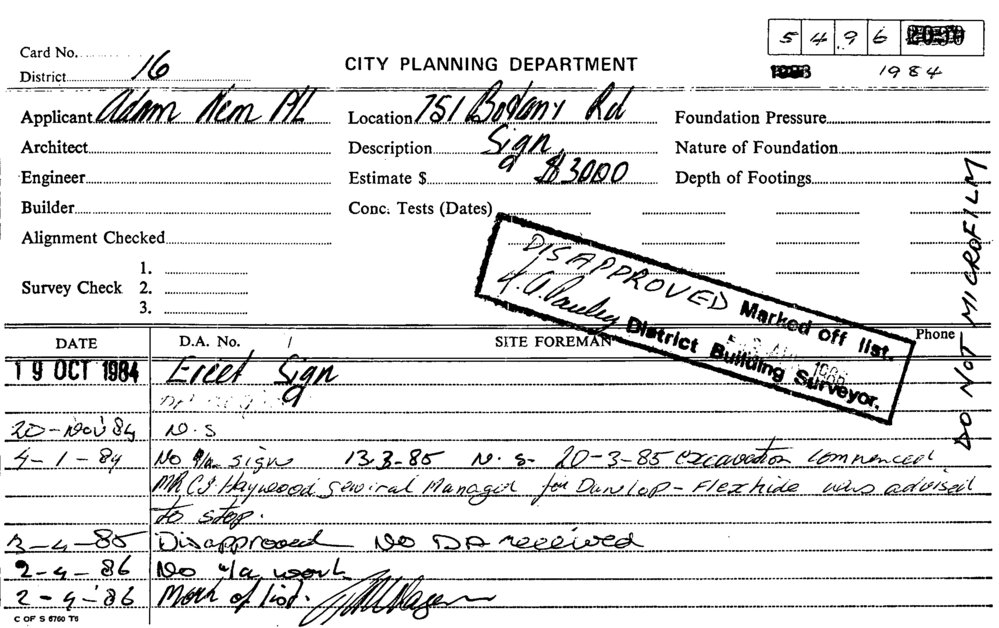 5 4 9 6
Card No.
District 16
CITY PLANNING DEPARTMENT
1984
Applicant Adam Kem P/L
Location 751 Botany Rd
Foundation Pressure
Architect
Description Sign
Nature of Foundation
Engineer
Estimate $ $3000
Depth of Footings
Builder
Conc. Tests (Dates)
Alignment Checked
Survey Check
1.
2.
3.
DO NOT MICROFILM
DISAPPROVED Marked off list.
District Building Surveyor.
DATE
D.A. No.
SITE FOREMAN
Phone
19 OCT 1984 Erect Sign
20-Nov 84 N.S
4-1-84 No sign 13-3-85 N.S. 20-3-85 excavation commenced
MR Haywood General Manager for Dunlop-Flexhide was advised
to stop.
3-4-85 Disapproved No DA received
2-4-86 No work
2-4-86 Mark of list.
C OF S 6760 T6